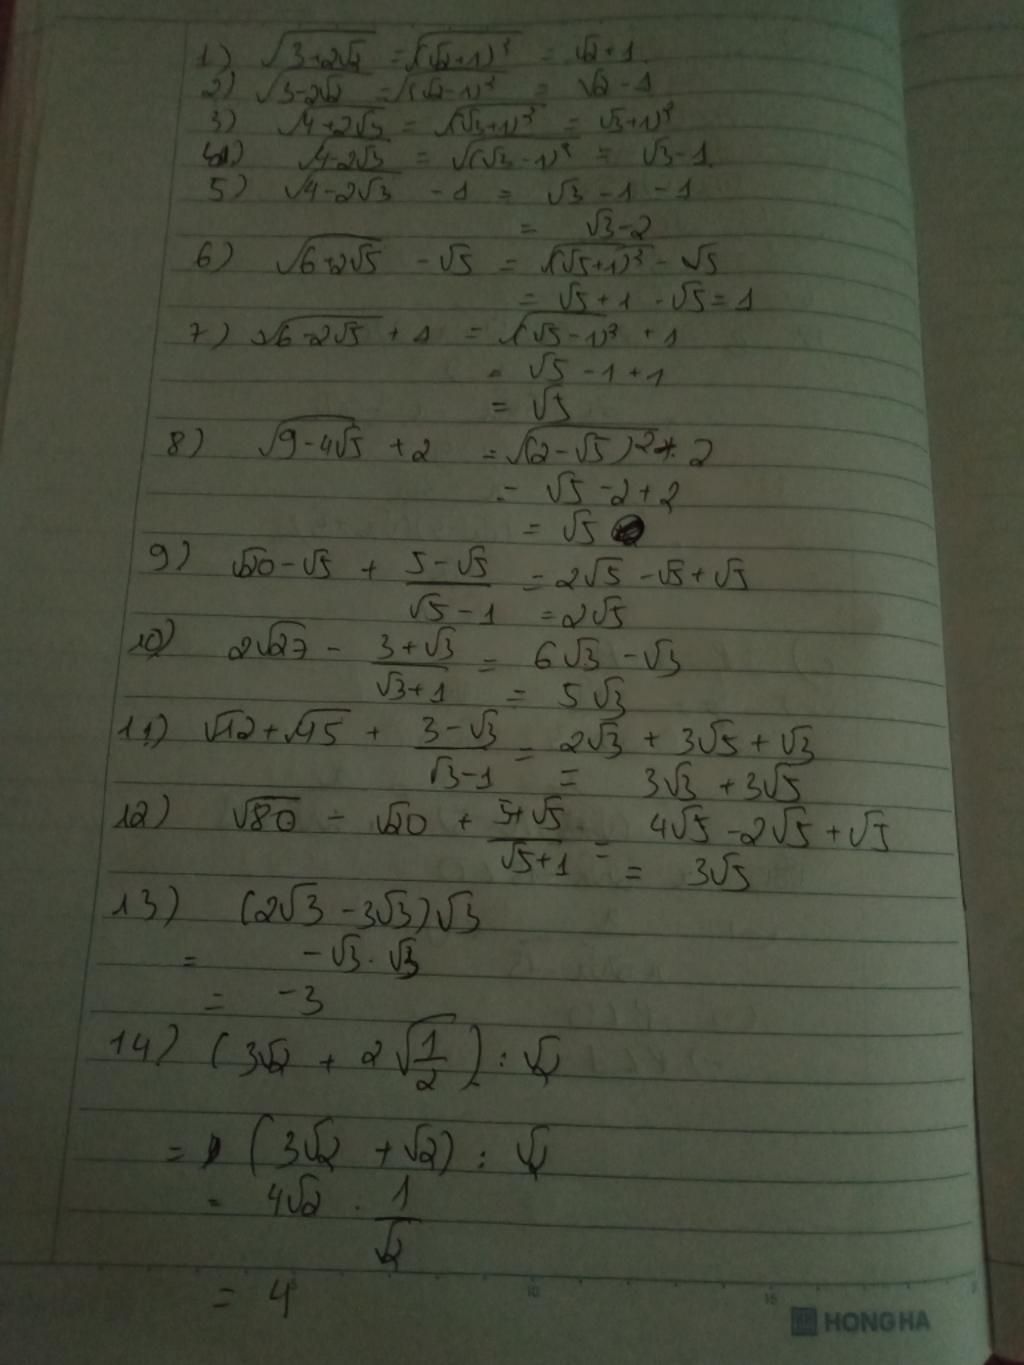 1) √(3+2√2) = √((√2+1)²) = √2+1.
2) √(3-2√2) = √((√2-1)²) = √2-1
3) √(4+2√3) = √((√3+1)²) = √3+1)²
4) √(4-2√3) = √((√3-1)²) = √3-1.
5) √(4-2√3) - 1 = √3-1-1
= √3-2
6) √(6+2√5) - √5 = √((√5+1)²) - √5
= √5+1-√5=1
7) √(6-2√5) + 1 = √((√5-1)²) + 1
= √5-1+1
= √5
8) √(9-4√5) + 2 = √((2-√5)²) + 2
= √5-2+2
= √5
9) √20-√5 + (5-√5)/(√5-1) = 2√5-√5+√5
= 2√5
10) 2√27 - (3+√3)/(√3+1) = 6√3-√3
= 5√3
11) √12+√45 + (3-√3)/(√3-1) = 2√3+3√5+√3
= 3√3+3√5
12) √80 - √20 + (5+√5)/(√5+1) = 4√5-2√5+√5
= 3√5
13) (2√3-3√3)√3
= -√3.√3
= -3
14) (3√2 + 2√(1/2)) : √2
= (3√2+√2) : √2
= 4√2 . 1/√2
= 4
10 15
HONG HA